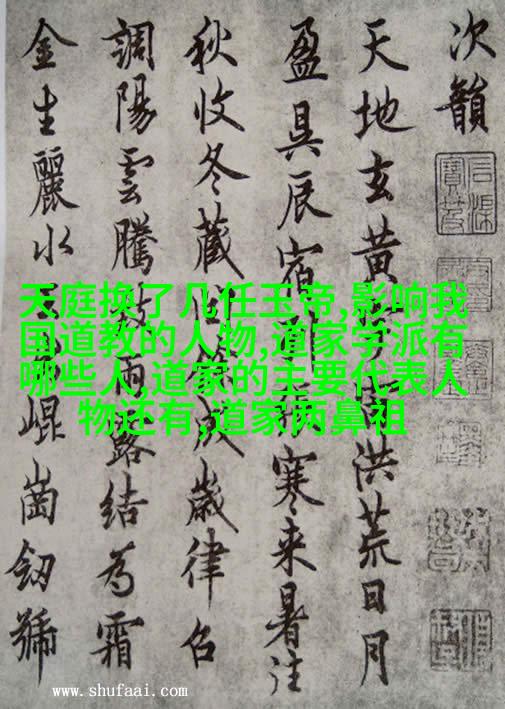 次韻
天地玄黄洪荒日月
盈昃辰宿寒来暑往
秋收冬藏成歲律吕
調陽雲騰雨露結為霜
金生麗水崐崗劒號
天庭换了几任玉帝,影响我
国道教的人物,道家学派有
哪些人,道家的主要代表人
物还有,道家两鼻祖
www.shufaai.com